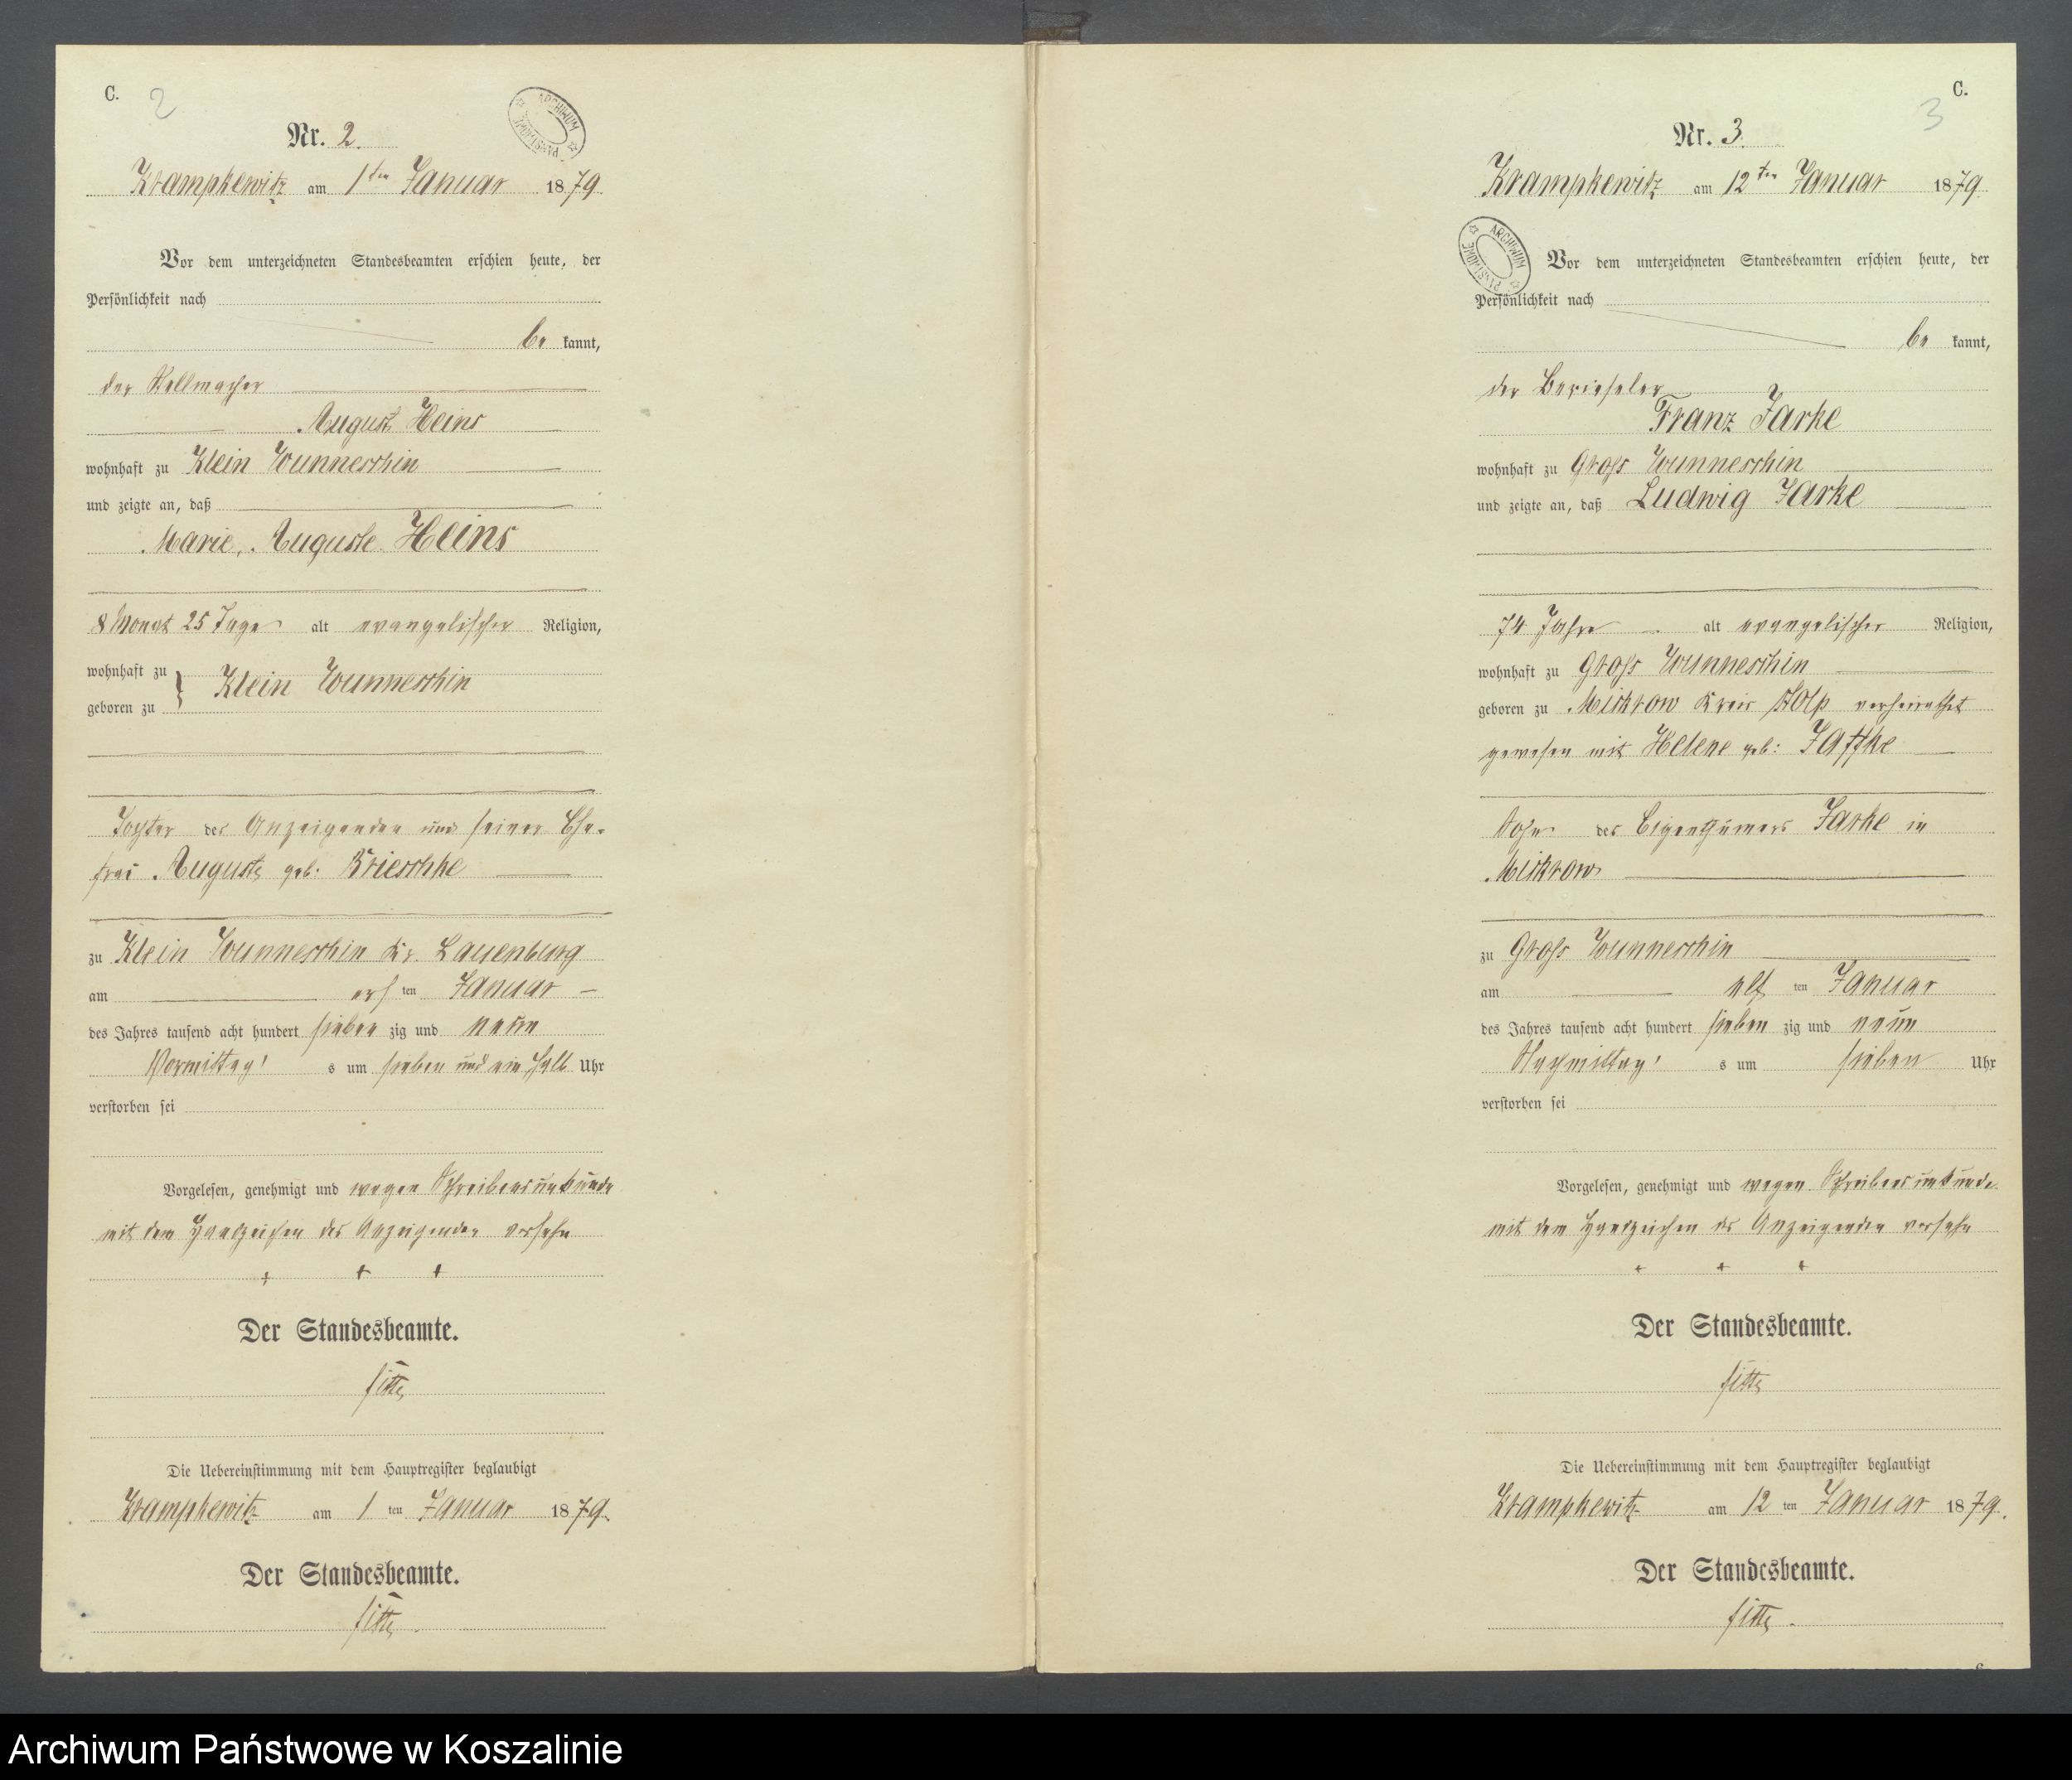 C.
2
Nr. 2.
ARCHIWUM PAŃSTWOWE
Krampkewitz am 1ten Januar 1879.
Vor dem unterzeichneten Standesbeamten erschien heute, der
Persönlichkeit nach
be kannt,
der Stellmacher
August Heins
wohnhaft zu Klein Wunneschin
und zeigte an, daß
Marie, Auguste Heins
8 Monat 25 Tage alt evangelischer Religion,
wohnhaft zu
Klein Wunneschin
geboren zu
Tochter des Anzeigenden und seiner Ehe-
frau Auguste geb. Krieschke
zu Klein Wunneschin Kr. Lauenburg
am ersten Januar
des Jahres tausend acht hundert sieben zig und neun
Vormittag's um sieben und ein halb Uhr
verstorben sei
Vorgelesen, genehmigt und wegen Schreibensunkunde
mit dem Handzeichen des Anzeigenden versehn
+ + +
Der Standesbeamte.
Die Uebereinstimmung mit dem Hauptregister beglaubigt
Krampkewitz am 1 ten Januar 1879.
Der Standesbeamte.
C.
3
Nr. 3.
Krampkewitz am 12ten Januar 1879.
ARCHIWUM PAŃSTWOWE
Vor dem unterzeichneten Standesbeamten erschien heute, der
Persönlichkeit nach
be kannt,
der Berieseler
Franz Jarke
wohnhaft zu Gross Wunneschin
und zeigte an, daß Ludwig Jarke
74 Jahre alt evangelischer Religion,
wohnhaft zu Gross Wunneschin
geboren zu Mickrow Kreis Stolp verheirathet
gewesen mit Helene geb: Jaffke
Sohn des Eigenthümers Jarke in
Mickrow
zu Gross Wunneschin
am elf ten Januar
des Jahres tausend acht hundert sieben zig und neun
Nachmittag's um sieben Uhr
verstorben sei
Vorgelesen, genehmigt und wegen Schreibensunkunde
mit dem Handzeichen des Anzeigenden versehn
+ + +
Der Standesbeamte.
Die Uebereinstimmung mit dem Hauptregister beglaubigt
Krampkewitz am 12 ten Januar 1879.
Der Standesbeamte.
Archiwum Państwowe w Koszalinie